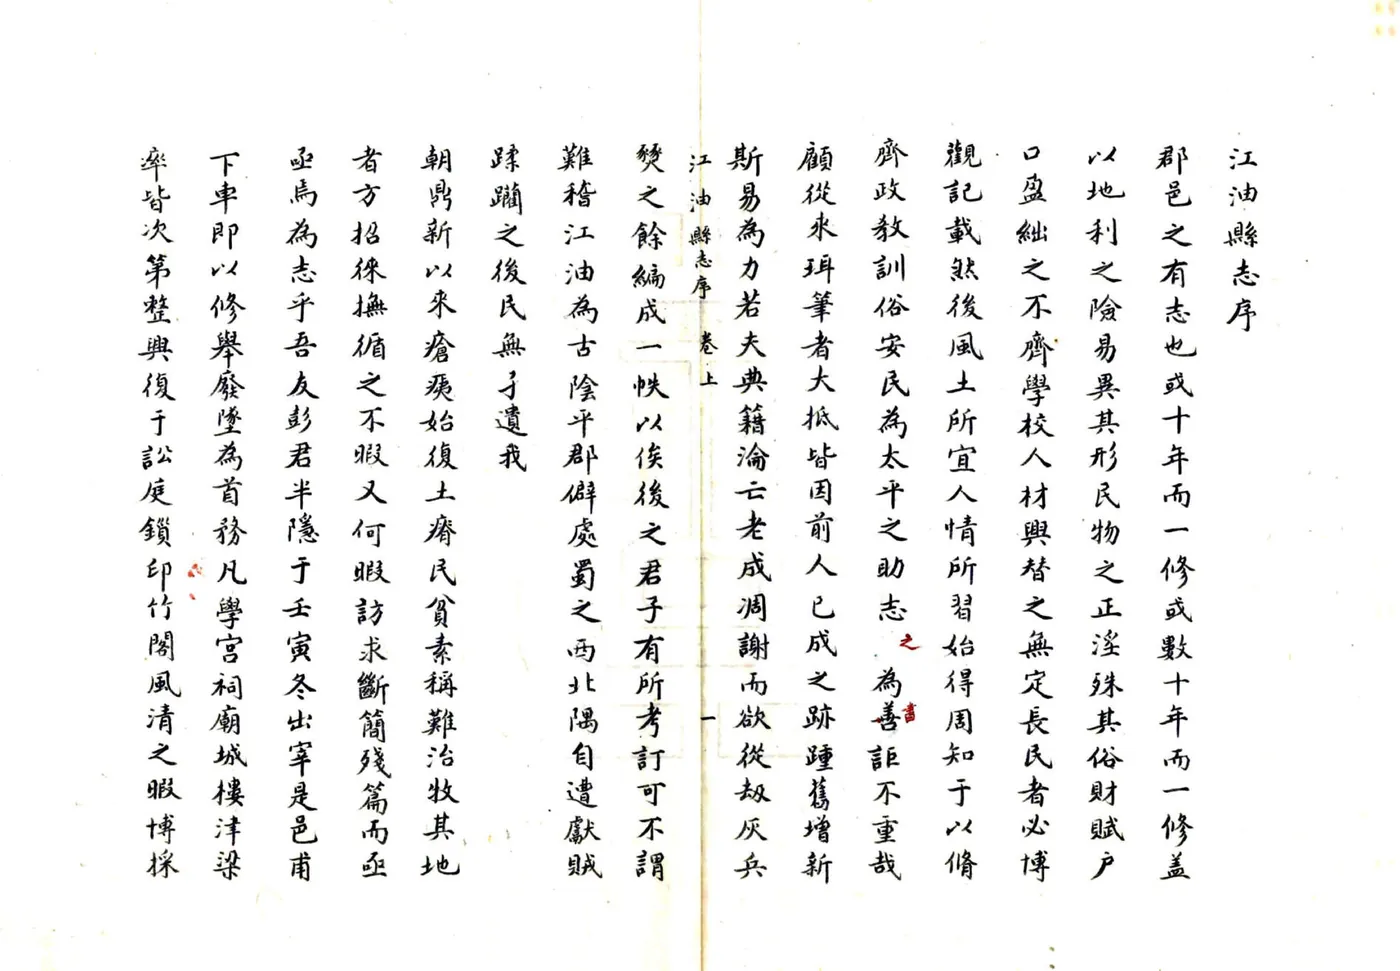 江油縣志序
郡邑之有志也或十年而一修或數十年而一修盖
以地利之險易異其形民物之正淫殊其俗財賦户
口盈絀之不齊學校人材興替之無定長民者必博
觀記載然後風土所宜人情所習始得周知于以脩
齊政敎訓俗安民為太平之助志之為善書詎不重哉
顧從來珥筆者大抵皆因前人已成之跡踵舊增新
斯易為力若夫典籍淪亡老成凋謝而欲從刼灰兵
江油縣志序 卷上 一
燹之餘編成一帙以俟後之君子有所考訂可不謂
難稽江油為古陰平郡僻處蜀之西北隅自遭獻賊
蹂躪之後民無孑遺我
朝鼎新以來瘡痍始復土瘠民貧素稱難治牧其地
者方招徠撫循之不暇又何暇訪求斷簡殘篇而亟
亟焉為志乎吾友彭君半隱于壬寅冬出宰是邑甫
下車即以修舉廢墜為首務凡學宮祠廟城樓津梁
率皆次第整興復于訟庭鎖印竹閣風清之暇博採